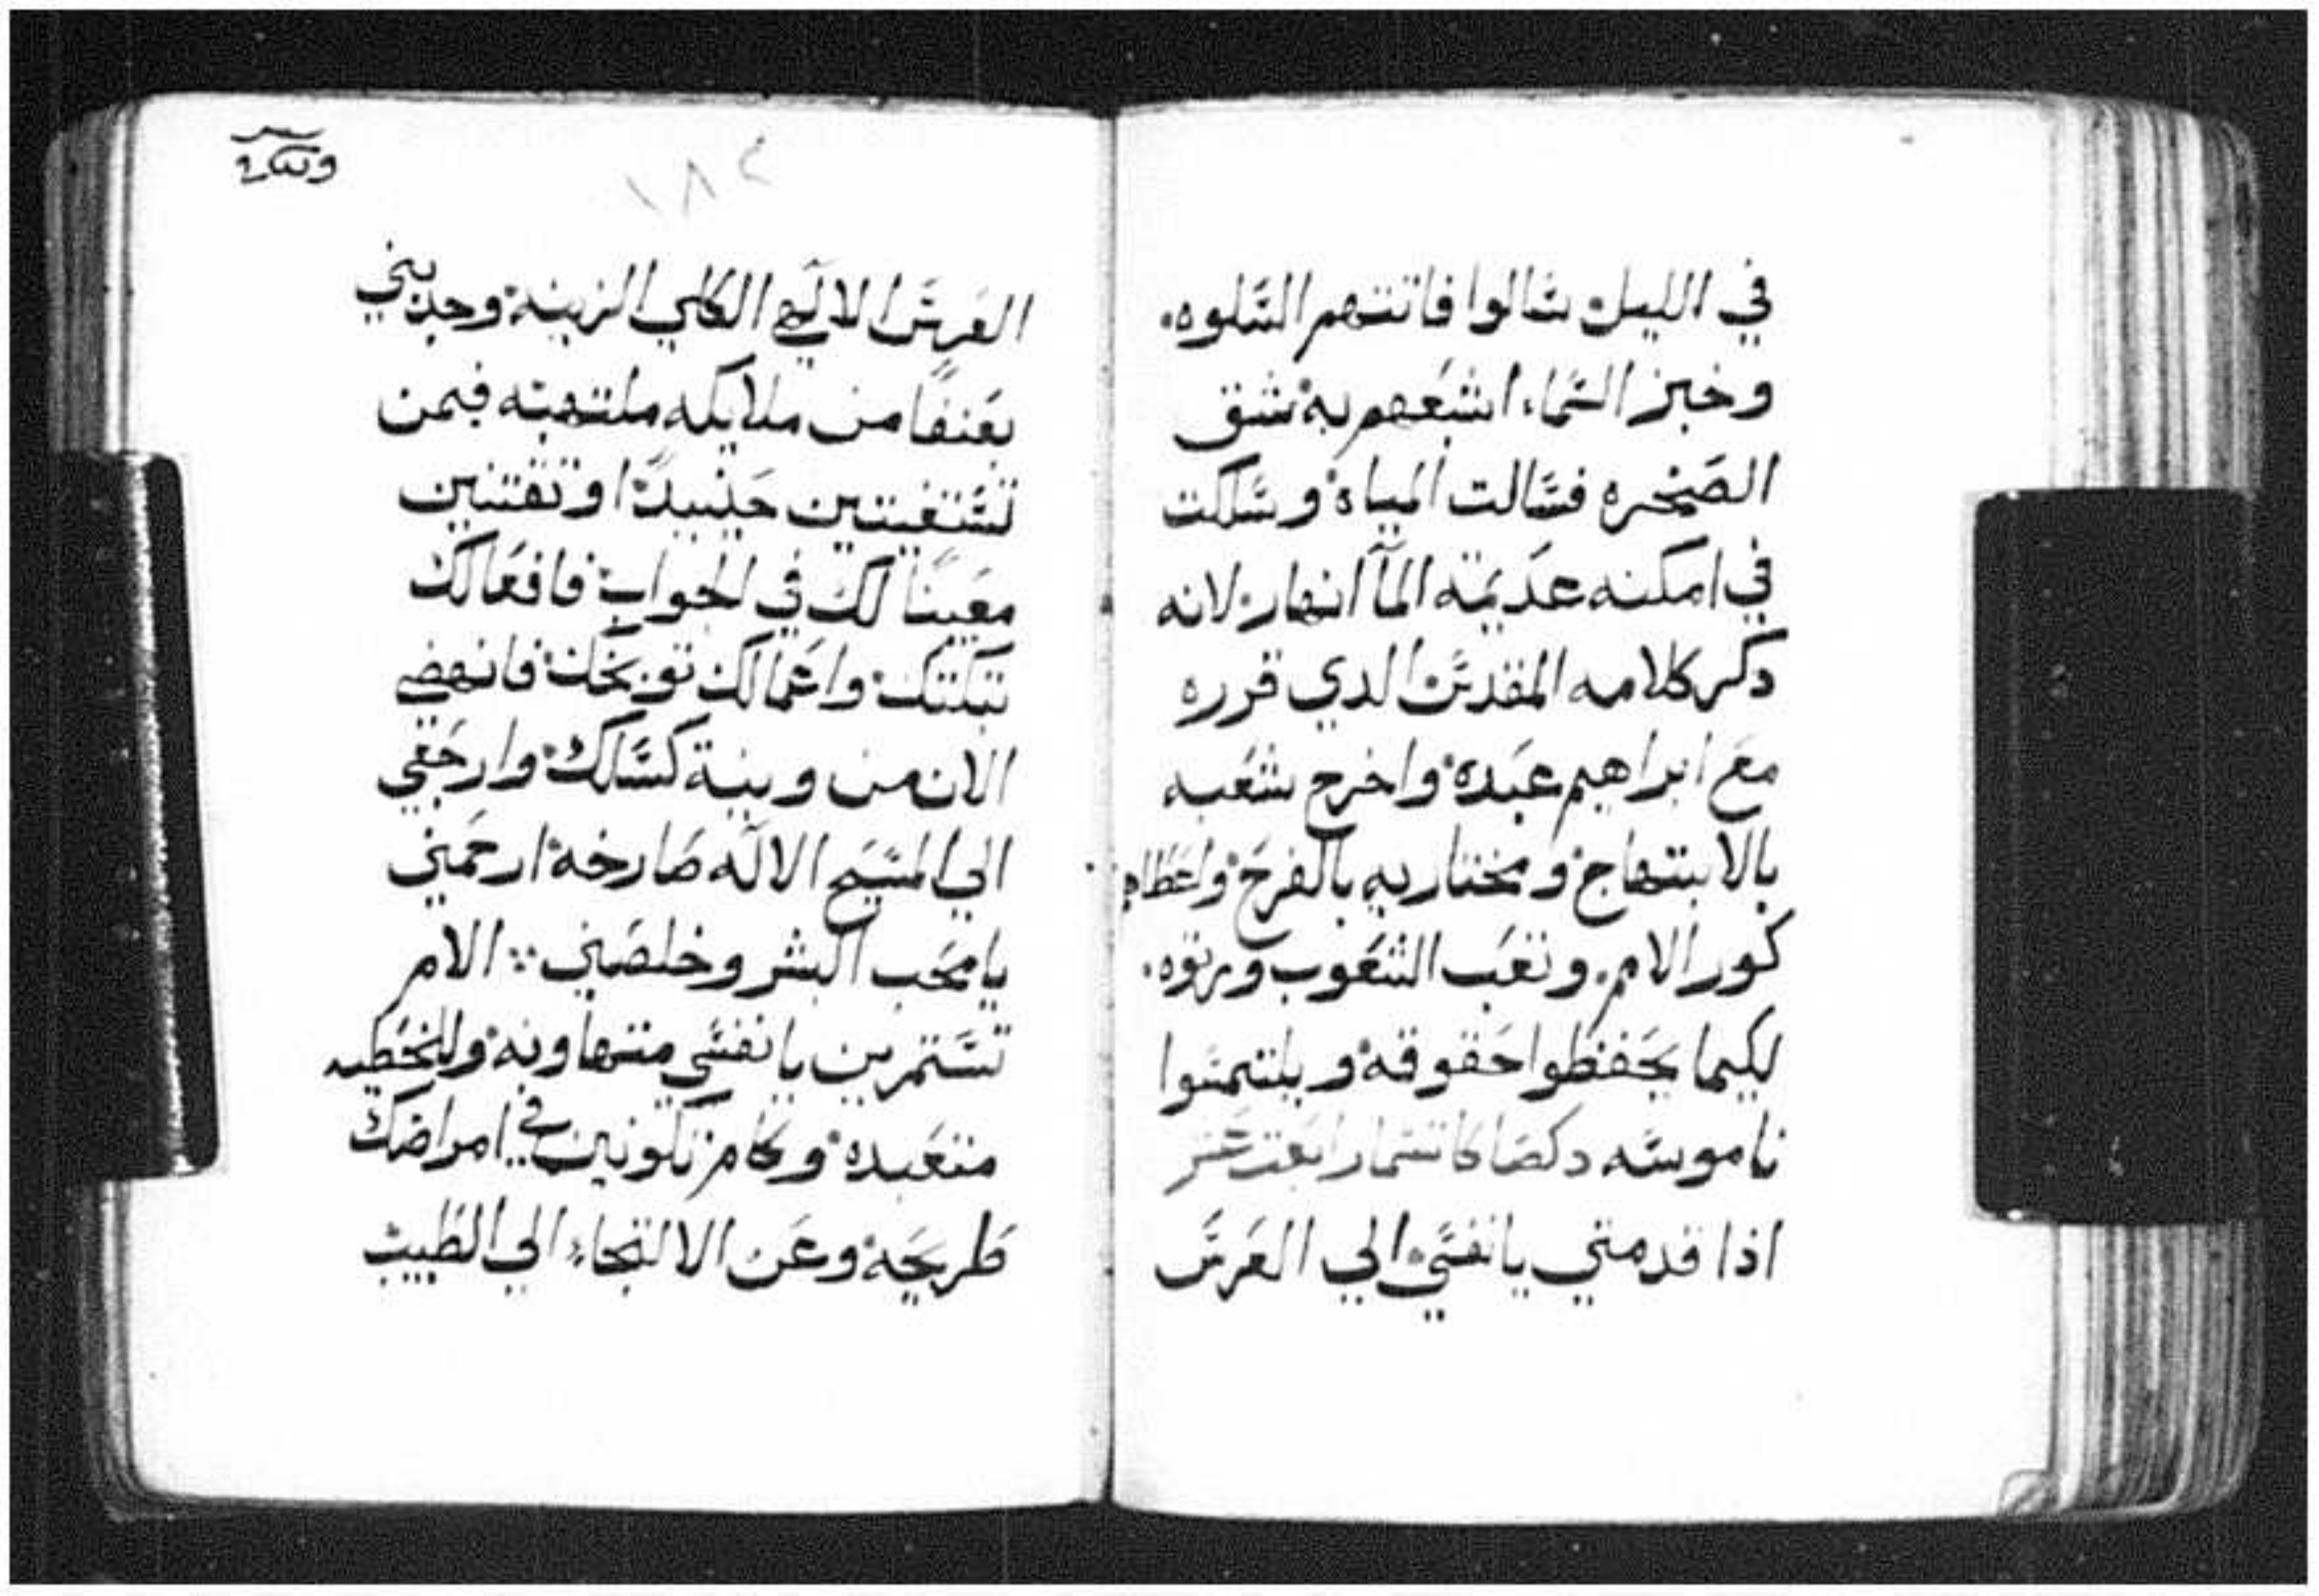 في الليل سالوا فاتتهم السلوه.
وخبز السماء اشبعهم به شق
الصخره فسالت المياه وسلكت
في امكنه عديمة المآ انهار لانه
دكر كلامه المقدس الدي قرره
مع ابراهيم عبده واخرج شعبه
بالابتهاج ومختاريه بالفرح واعطاهم
كور الامم. وتعب الشعوب ورتوه.
لكيما يحفظوا حقوقه ويلتمسوا
ناموسه دكصاكاتسمار
اذا قدمتي يا نفسي الي العرس
١٨٢
العرس الالهي الكلي الزينه وجدبني
بعنفا من ملايكه ملتهبه فبمن
تستغيتين حينيدا او تقتنين
معينا لك في الجواب فافعالك
تبكتك واعمالك توبخك فانهضي
الان من وينية كسلك وارجعي
الي المسيح الاله صارخه ارحمني
يا محب البشر وخلصني ⁘ الام
تستمرين يا نفسي متهاونه وللخطيه
متعبده وكام تكونين في امراضك
طريحه وعن الالتجاء الي الطبيب